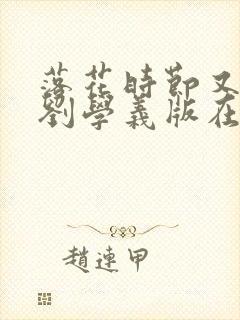 落花時節又
劉學義版在
趙連甲